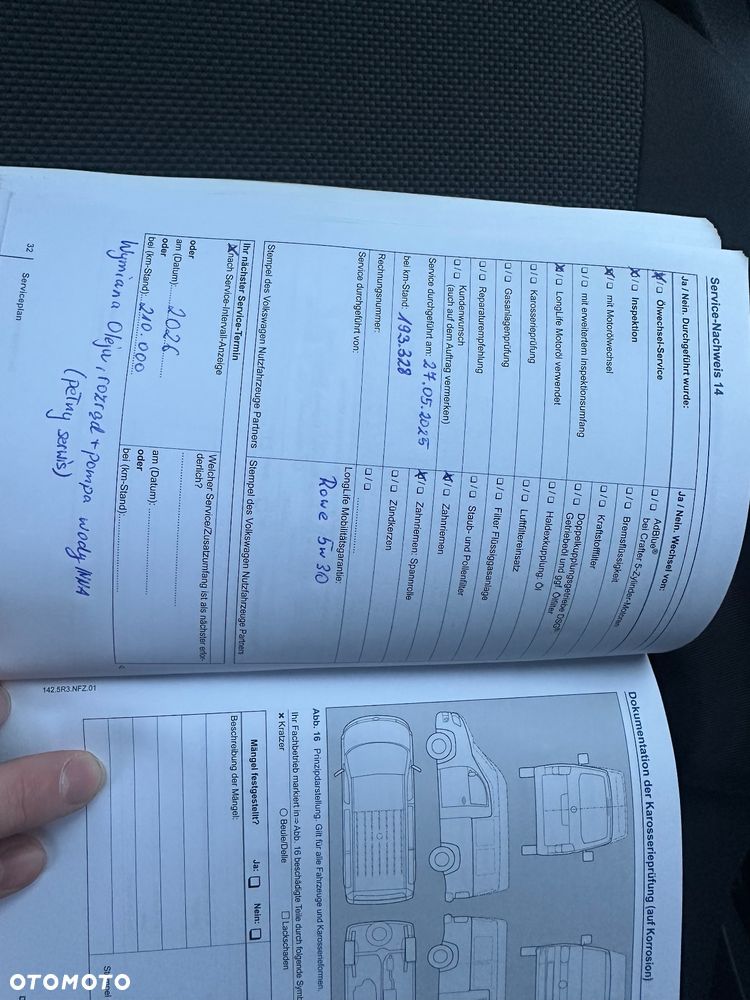 Service-Nachweis 14
Ja / Nein. Durchgeführt wurde:
Ölwechsel-Service
Inspektion
mit Motorölwechsel
mit erweitertem Inspektionsumfang
LongLife Motoröl verwendet
Karosserieprüfung
Gasanlagenprüfung
Reparaturempfehlung
Kundenwunsch
(auch auf dem Auftrag vermerken)
Service durchgeführt am: 27.05.2025
bei km-Stand 193.328
Rechnungsnummer:
Service durchgeführt von:
Stempel des Volkswagen Nutzfahrzeuge Partners
Ja / Nein. Wechsel von:
AdBlue®
bei Crafter 5-Zylinder-Motoren
Bremsflüssigkeit
Kraftstofffilter
Doppelkupplungsgetriebe DSG®:
Getriebeöl und ggf. Ölfilter
Haldexkupplung: Öl
Luftfiltereinsatz
Filter Flüssiggasanlage
Staub- und Pollenfilter
Zahnriemen
Zahnriemen: Spannrolle
Zündkerzen
LongLife Mobilitätsgarantie:
Rowe 5w30
Stempel des Volkswagen Nutzfahrzeuge Partners
Ihr nächster Service-Termin
nach Service-Intervall-Anzeige
oder
am (Datum): 2026
oder
bei (km-Stand): 210.000
Welcher Service/Zusatzumfang ist als nächster erfor-
derlich?
am (Datum):
oder
bei (km-Stand):
Wymiana Oleju, rozrząd + pompa wody INA
(pełny serwis)
32 Serviceplan
142.5R3.NFZ.01
Dokumentation der Karosserieprüfung (auf Korrosion)
Abb. 16 Prinzipdarstellung. Gilt für alle Fahrzeuge und Karosserieformen.
Ihr Fachbetrieb markiert in ⇒ Abb. 16 beschädigte Teile durch folgende Symb
× Kratzer ○ Beule/Delle □ Lackschaden
Mängel festgestellt? Ja: Nein:
Beschreibung der Mängel:
OTOMOTO